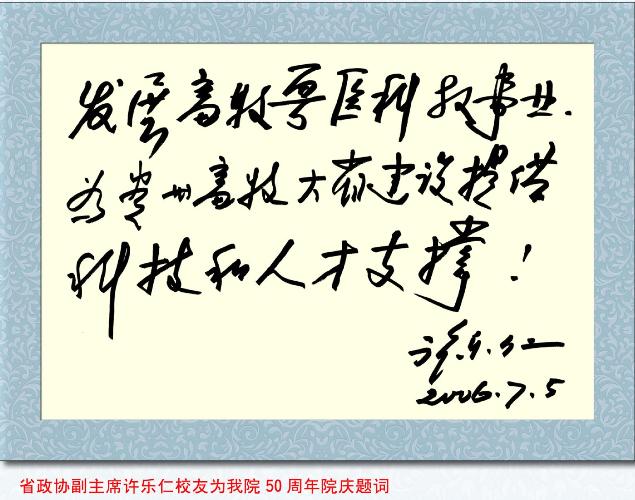 发展畜牧兽医科教事业.
为贵州畜牧大省建设提供
科技和人才支撑！
许乐仁
2006.7.5
省政协副主席许乐仁校友为我院 50 周年院庆题词